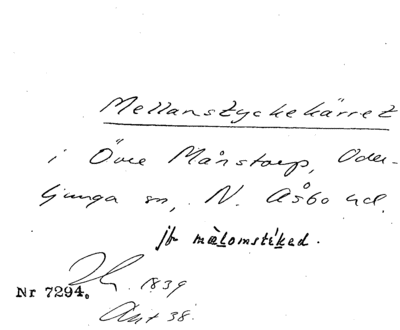 Mellanstyckekärret
i Övre Månstorp, Oder-
ljunga sn, N. Åsbo hd.
jfr mælomstiked.
1839
Nr 7294.
Ant 38.